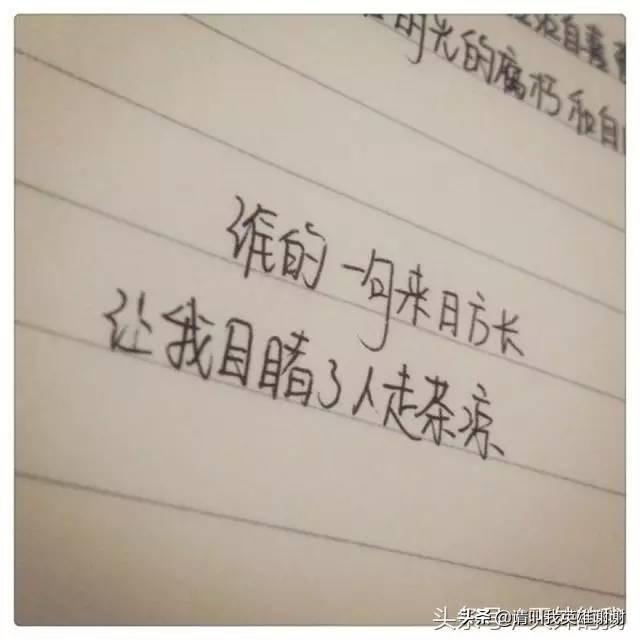 自
时光的腐朽和自
谁的一句来日方长
让我目睹了人走茶凉
头条@请叫我英雄谢谢